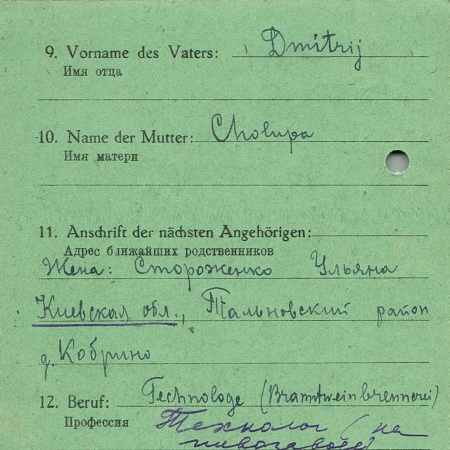 9. Vorname des Vaters: Dmitrij
Имя отца
10. Name der Mutter: Cholupa
Имя матери
11. Anschrift der nächsten Angehörigen:
Адрес ближайших родственников
Жена: Стороженко Ульяна
Киевская обл., Тальновский район
д. Кобрино
12. Beruf: Technologe (Branntweinbrennerei)
Профессия Технолог (на